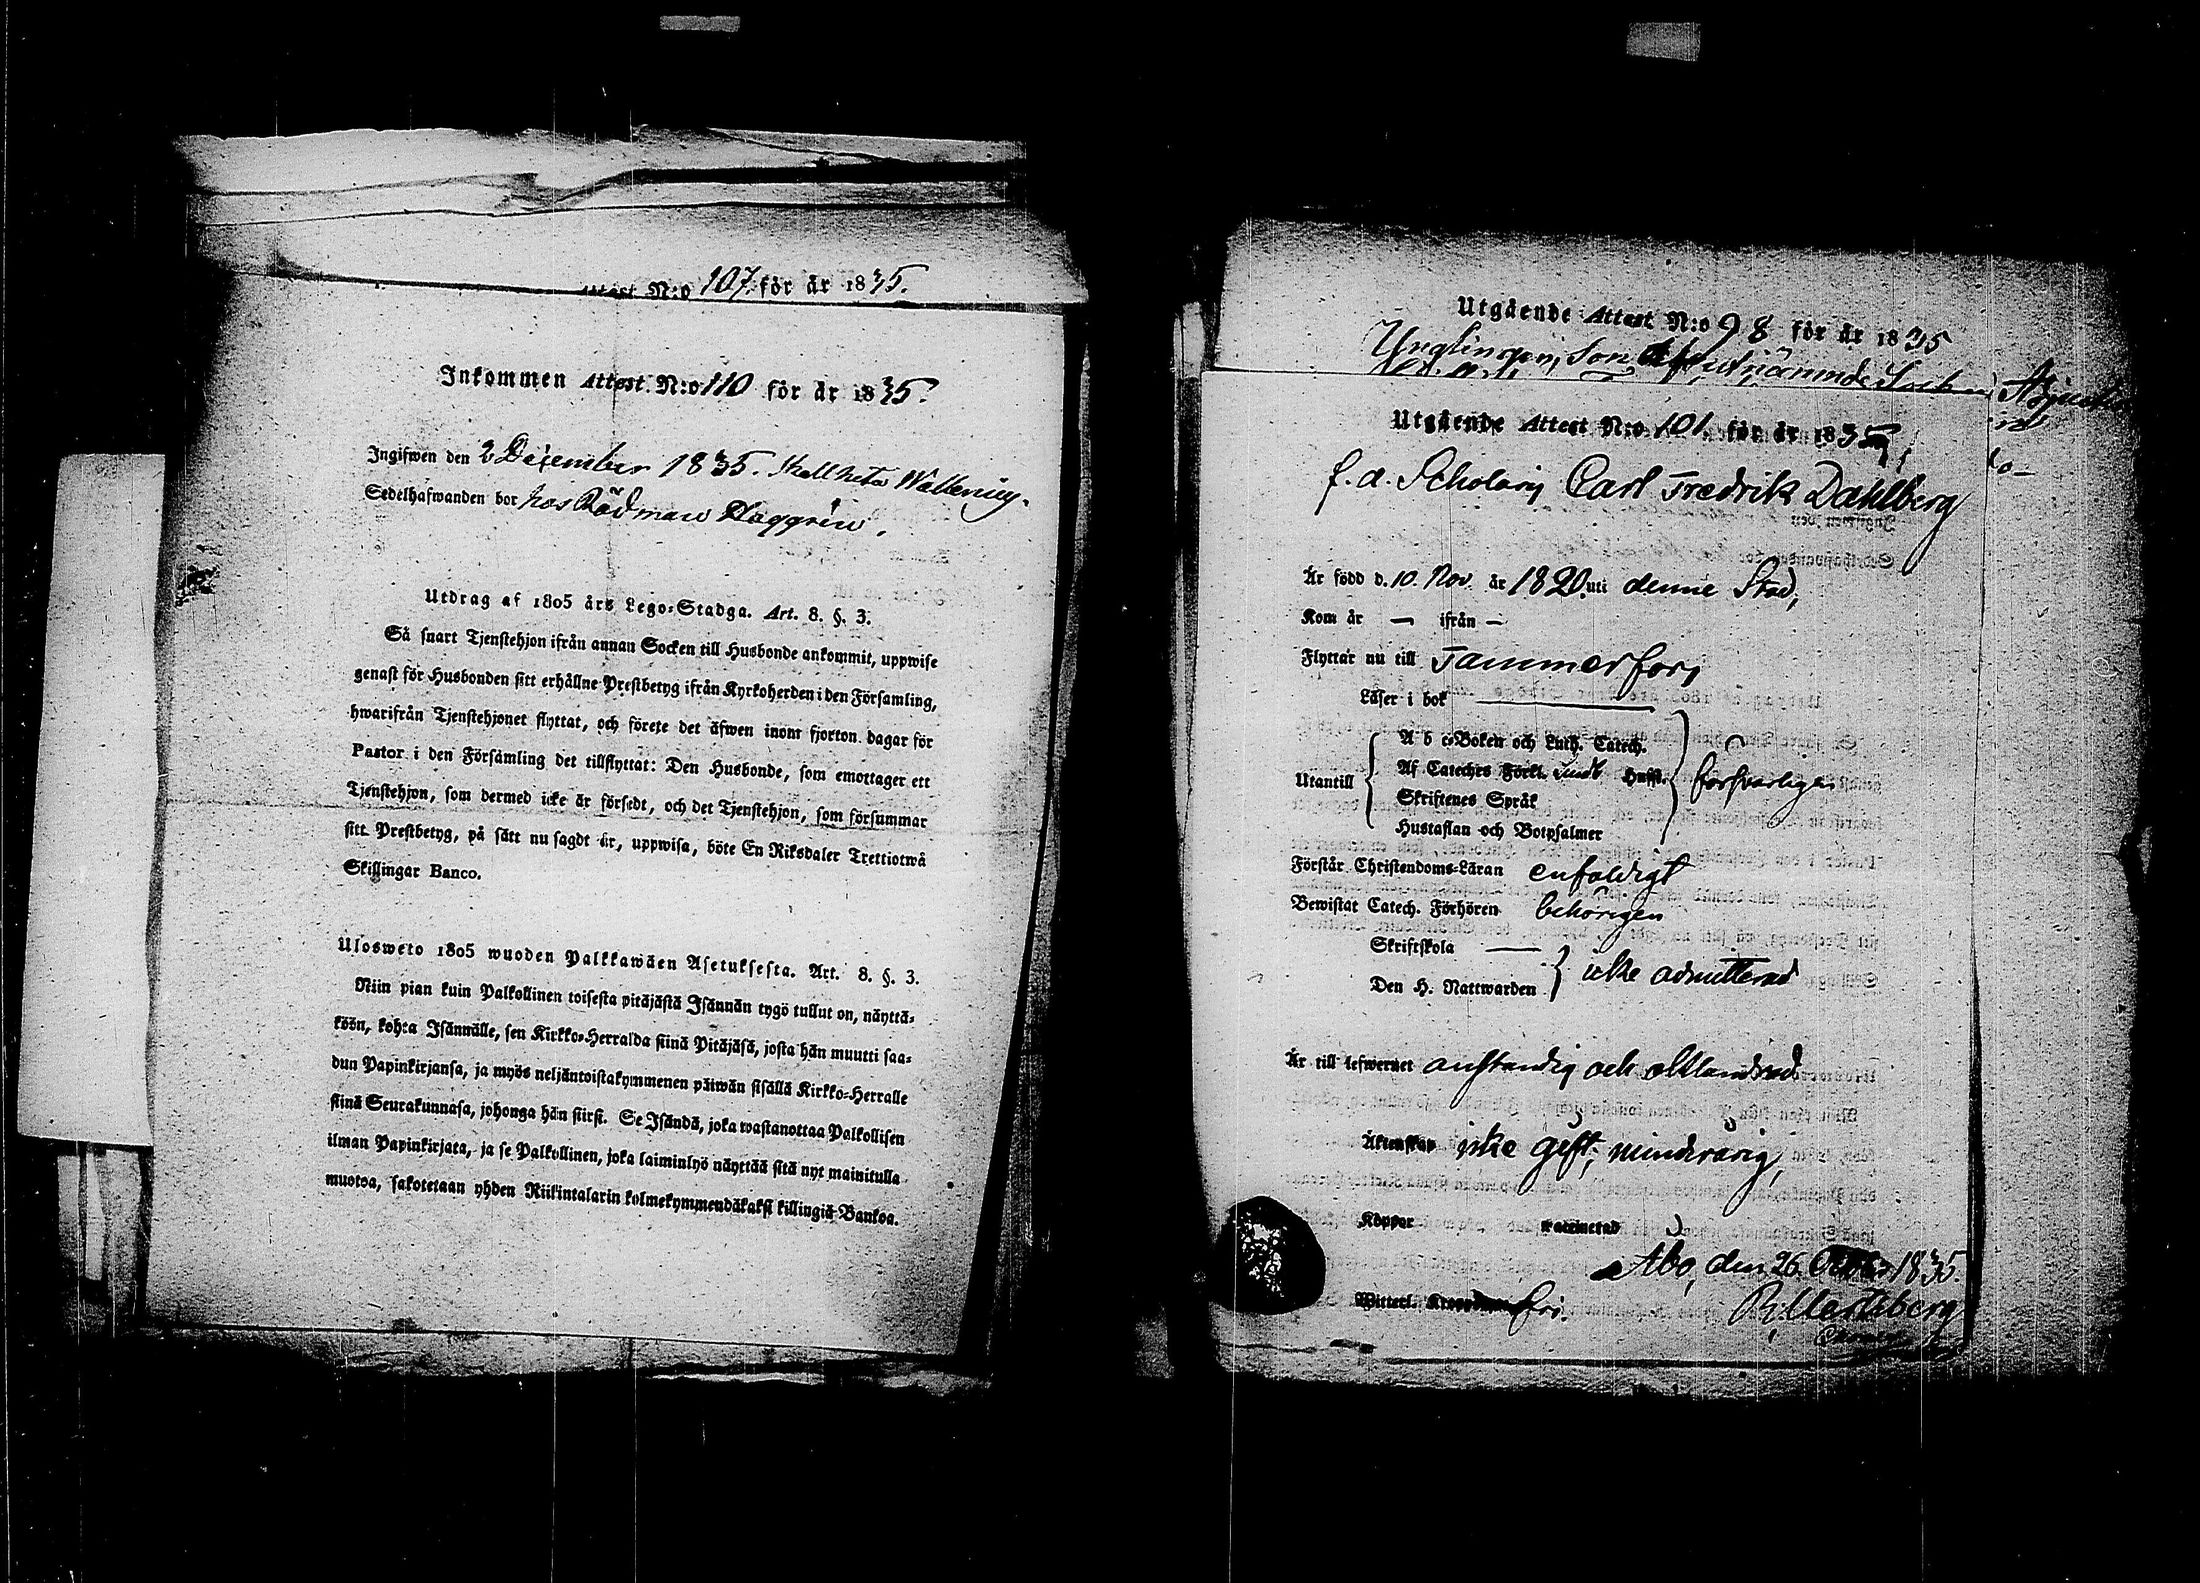 Attest N:o 107. för år 1835.
Inkommen Attest. N:o 110 för år 1835.
Ingifwen den 2 December 1835. Skall heta
Sedelhafwanden bor hos Rådman
Utdrag af 1805 års Lego-Stadga. Art. 8. §. 3.
Så snart Tjenstehjon ifrån annan Socken till Husbonde ankommit, uppwise
genast för Husbonden sitt erhållne Prestbetyg ifrån Kyrkoherden i den Församling,
hwarifrån Tjenstehjonet flyttat, och förete det äfwen inom fjorton dagar för
Pastor i den Församling det tillflyttat: Den Husbonde, som emottager ett
Tjenstehjon, som dermed icke är försedt, och det Tjenstehjon, som försummar
sitt Prestbetyg, på sätt nu sagdt är, uppwisa, böte En Riksdaler Trettiotwå
Skillingar Banco.
Ulosweto 1805 wuoden Palkkawäen Asetuksesta. Art. 8. §. 3.
Niin pian kuin Palkollinen toisesta pitäjästä Isännän tygö tullut on, näyttä-
köön, kohta Isännälle, sen Kirkko-Herralda siinä Pitäjäsä, josta hän muutti saa-
dun Papinkirjansa, ja myös neljäntoistakymmenen päiwän sisällä Kirkko-Herralle
siinä Seurakunnasa, johonga hän siirsi. Se Isändä, joka wastanottaa Palkollisen
ilman Papinkirjata, ja se Palkollinen, joka laiminlyö näyttää sitä nyt mainitulla
muotoa, sakotetaan yhden Riikintalarin kolmekymmendäkaksi killingiä Bankoa.
Utgående Attest N:o 98 för år 1835
Ynglingen, Son af
Utgående Attest N:o 101 för år 1835,
f. d. Scholaris Carl Fredrik Dahlberg
Är född d. 10. Nov. år 1820. uti denne Stad,
Kom år — ifrån —
Flyttar nu till Tammerfors
Läser i bok
A b c-Boken och Luth. Catech.
Utantill Af Cateches Förkl. Hufst. försvarligen
Skriftenes Språk
Hustaflan och Botpsalmer
Förstår Christendoms-Läran enfaldigt
Bewistat Catech. Förhören behörigen
Skriftskola —
Den H. Nattwarden icke admitterad
Är till lefwernet anständig och oklandrad
Äktenskap icke gift, minderårig,
Koppor vaccinerad
Åbo, den 26. 1835.
Witterl. fri.